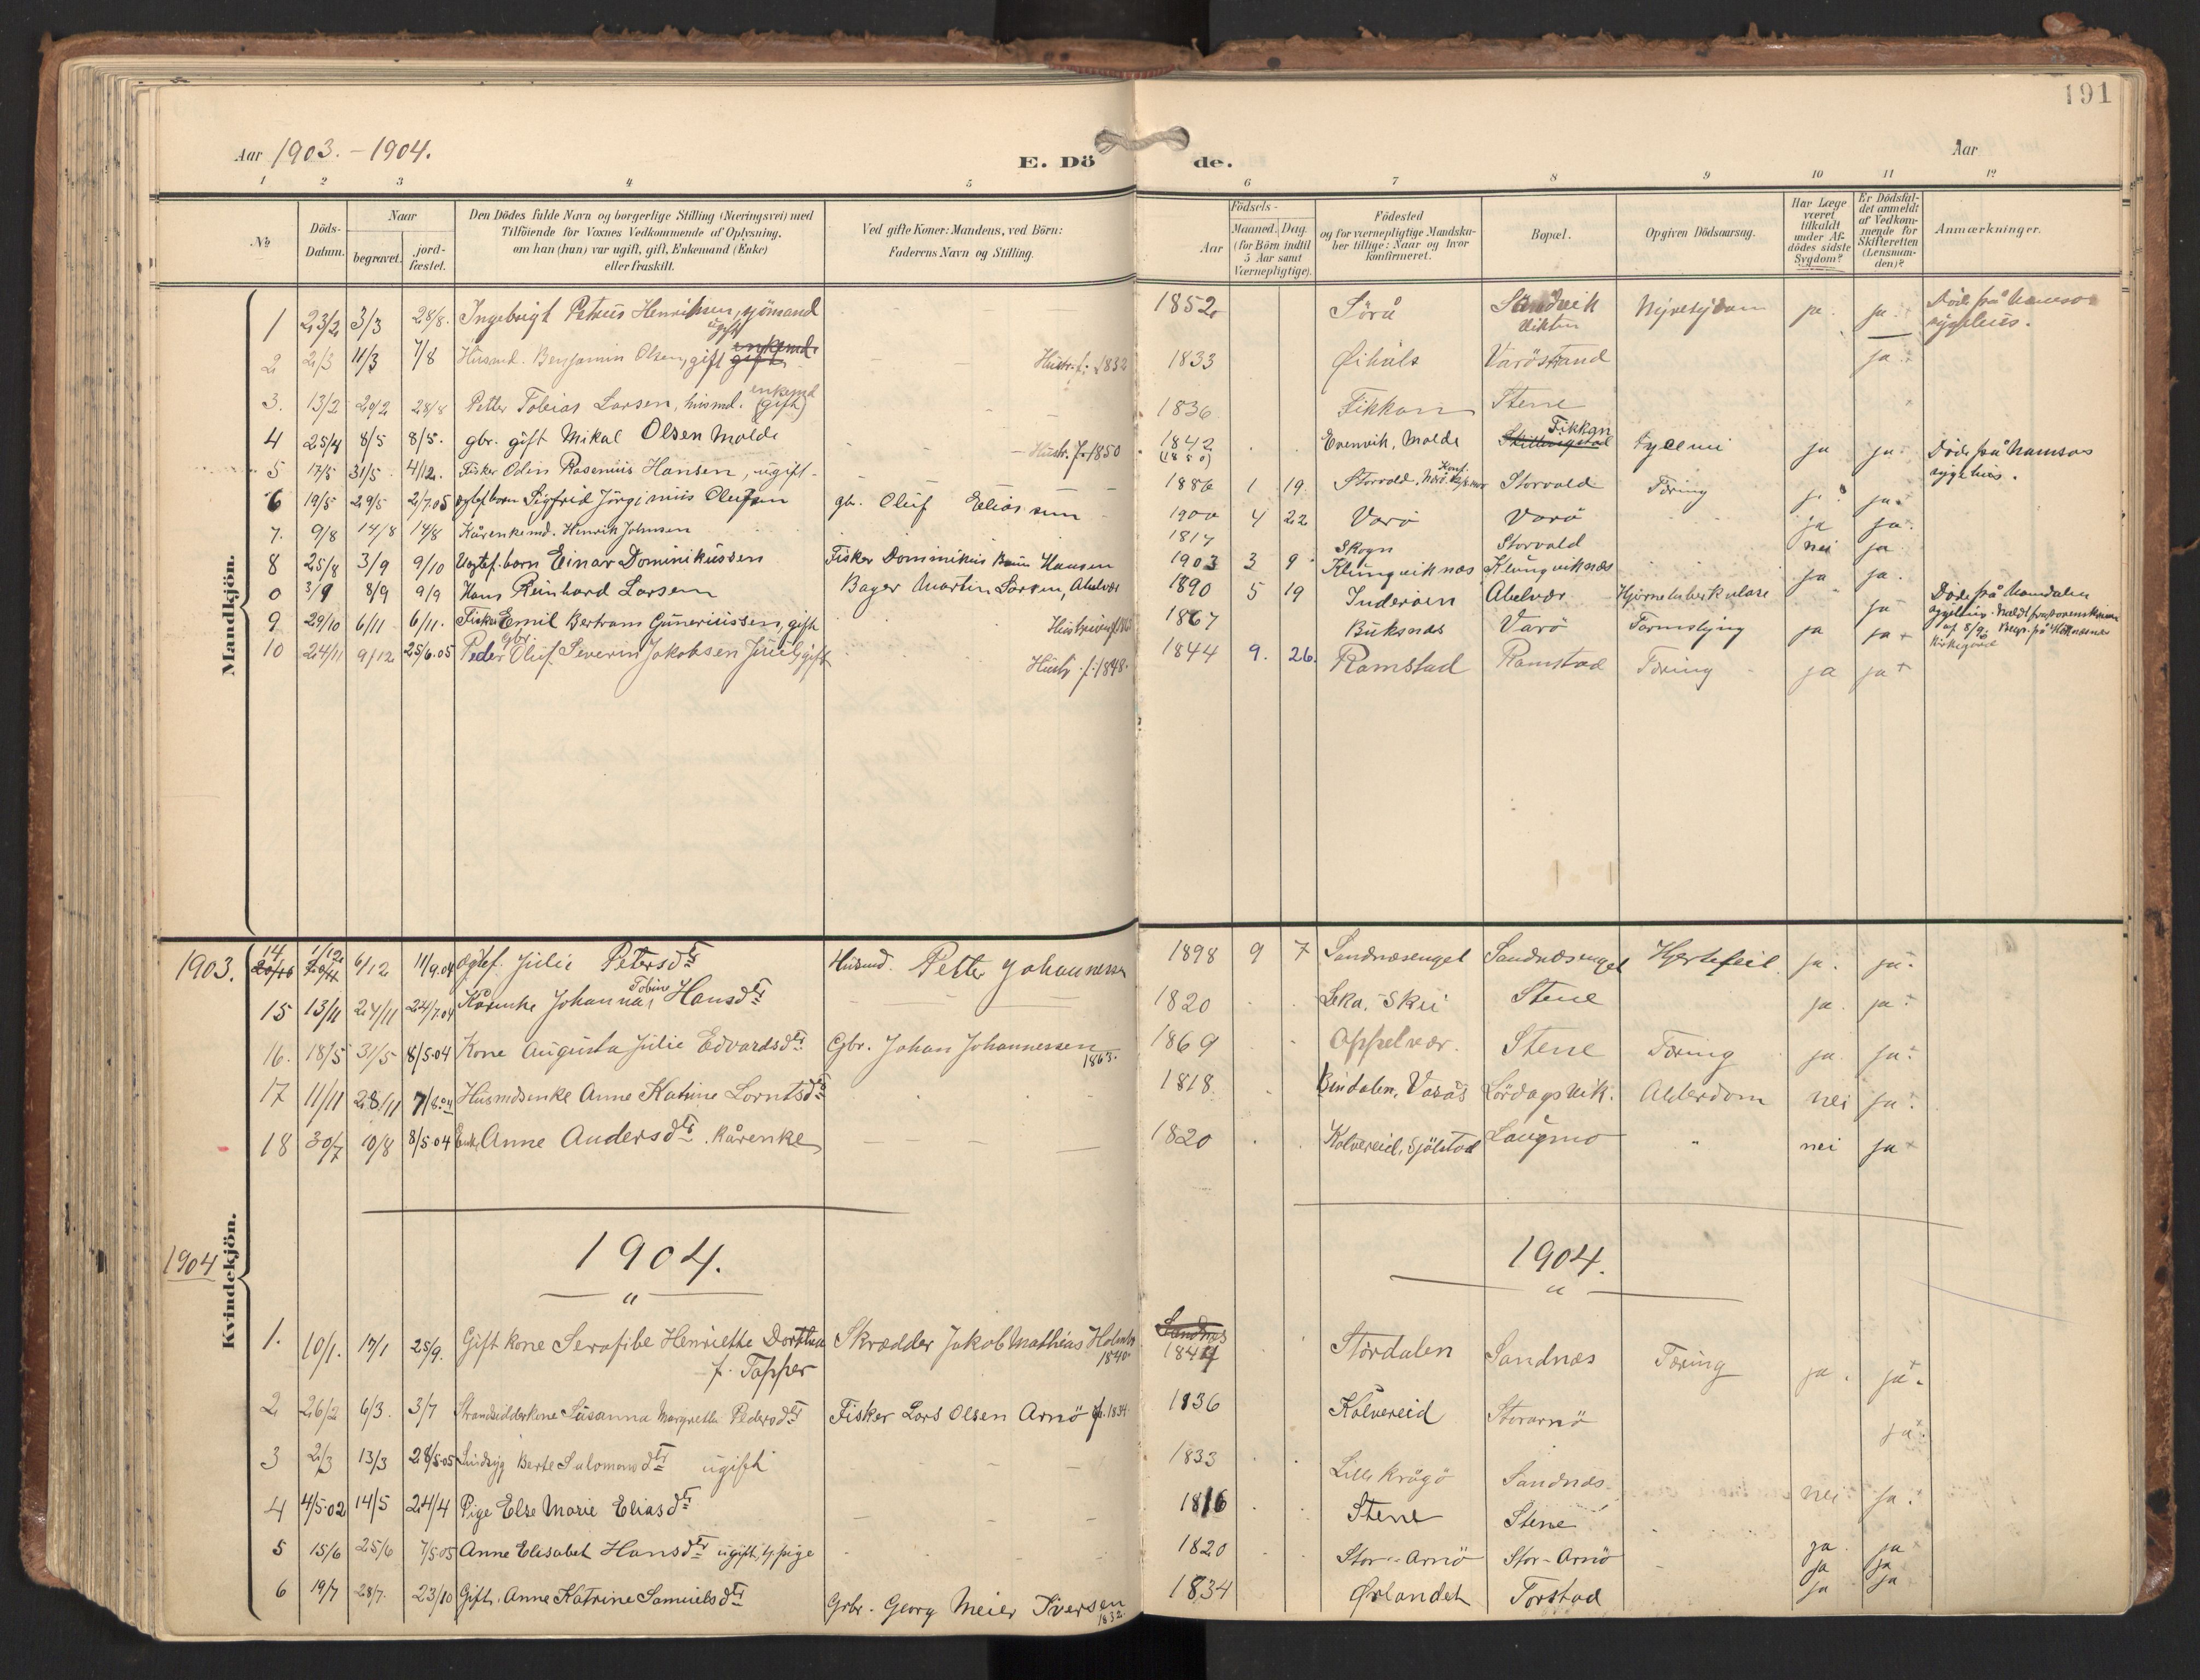 191
Aar 1903. - 1904.
E. Dö de.
Aar
1 2 3 4 5 6 7 8 9 10 11 12
№
Döds-Datum.
Naar
begravet.
jord-fæstet.
Den Dödes fulde Navn og borgerlige Stilling (Næringsvei) med
Tilföiende for Voxnes Vedkommende af Oplysning,
om han (hun) var ugift, gift, Enkemand (Enke)
eller fraskilt.
Ved gifte Koner: Mandens, ved Börn:
Faderens Navn og Stilling.
Födsels-
Aar
Maaned. Dag
(for Börn indtil
5 Aar samt
Værnepligtige).
Födested
og for værnepligtige Mandska-
ber tillige: Naar og hvor
konfirmeret.
Bopæl.
Opgiven Dödsaarsag.
Har Læge
været
tilkaldt
under Af-
dödes sidste
Sygdom?
Er Dödsfal-
det anmeldt
af Vedkom-
mende for
Skifteretten
(Lensman-
den)?
Anmærkninger.
Mandkjön.
1 23/2 3/3 28/8. Ingebrigt Petrus Henriksen, sjömand ugift 1852 Sörå Sandvik Nyresygdom ja. ja. Döde på Namsos sygehus.
2 2/3 11/3 7/8 Husmd. Benjamin Olsen, gift enkemd. gift Hustr. f. 1832 1833 Øihals Varöstrand ja
3. 13/2 29/2 28/8 Petter Tobias Larsen, husmd. enkemd (gift) 1836 Fikkan Stene
4 25/4 8/5 8/5. gbr. gift Mikal Olsen Molde Hustr. f. 1850 1842 (1850) Evenvik, Molde Fikkan ja ja Döde på Namsos sygehus.
5 17/5 31/5 4/12. Fisker Odin Rasmus Hansen, ugift 1886 1 19 Storvold, Storvold Tæring ja ja
6 19/5 29/5 2/7.05 Sigfrid Jörginius Olufsen gb. Oluf Eliassen 1900 4 22 Varö Varö ja ja
7. 9/8 14/8 14/8 Kårenkemd. Henrik Johnsen 1817 Skogn Storvold nei ja
8 25/8 3/9 9/10 Uegtef. barn Einar Dominikussen Fisker Dominikus Hansen 1903 3 9 Klungviknæs Klungviknæs ja ja.
0 3/9 8/9 9/9 Hans Reinhard Larsen Bager Martin Larsen, Abelvær 1890 5 19 Inderöen Abelvær Hjernetuberkulose ja Döde på Namdalen
9 29/10 6/11 6/11. Fisker Emil Bertram Guneriussen, gift 1867 Buksnæs Varö Tarmslyng ja ja
10 24/11 9/12 25/6.05 Peder gbr. Oluf Severin Jakobsen Juul, gift Hustr. f. 1848. 1844 9. 26. Ramstad Ramstad Tæring ja ja
Kvindekjön.
1903. 14 1/12 6/12 11/9.04 Ægtef. Julie Petersdtr Husmd. Petter Johannessen 1898 9 7 Sandnæsenget Sandnæsenget Hjertefeil ja. ja.
15 13/11 24/11 24/7.04 Kårenke Johanna Tobine Hansdtr 1820 Leka, Skei Stene ja. ja.
16. 18/5 31/5 8/5.04 Kone Augusta Julie Edvardsdtr Gbr. Johan Johannessen 1863. 1869 Appelvær. Stene Tæring ja. ja.
17 11/11 28/11 7/8.04 Husmdsenke Anne Katrine Lorntsdtr 1818. Bindalen, Vasås Lördagsvik. Alderdom nei ja.
18 30/7 10/8 8/5.04 Enke Anne Andersdtr. Kårenke 1820 Kolvereid, Sjölstad Laugmo " nei ja
1904
1904. 1904.
" "
1. 10/1. 17/1 25/9. Gift kone Serafibe Henriette Dorthea f. Tapper Skrædder Jakob Mathias Holmbo 1840 Sandnæs 1844 Stördalen Sandnæs Tæring ja. ja.
2 26/2 6/3. 3/7 Strandsidderkone Susanna Margrethe Pedersdtr Fisker Lars Olsen Arnö f. 1834 1836 Kolvereid Storarnö ja.
3 2/3 13/3 28/5.05 Berte Salomonsdtr ugift 1833 Lille Krågö Sandnæs nei ja.
4 4/5.02 14/5 24/4 Pige Else Marie Eliasdtr 1816 Stene Stene
5 15/6 25/6 7/5.05 Anne Elisabet Hansdtr ugift, tj. pige 1820 Stor-Arnö Stor-Arnö ja. ja
6 19/7 28/7. 23/10 Gift. Anne Katrine Samuelsdtr Grbr. Georg Meier Iversen 1832. 1834 Ørlandet Torstad ja ja